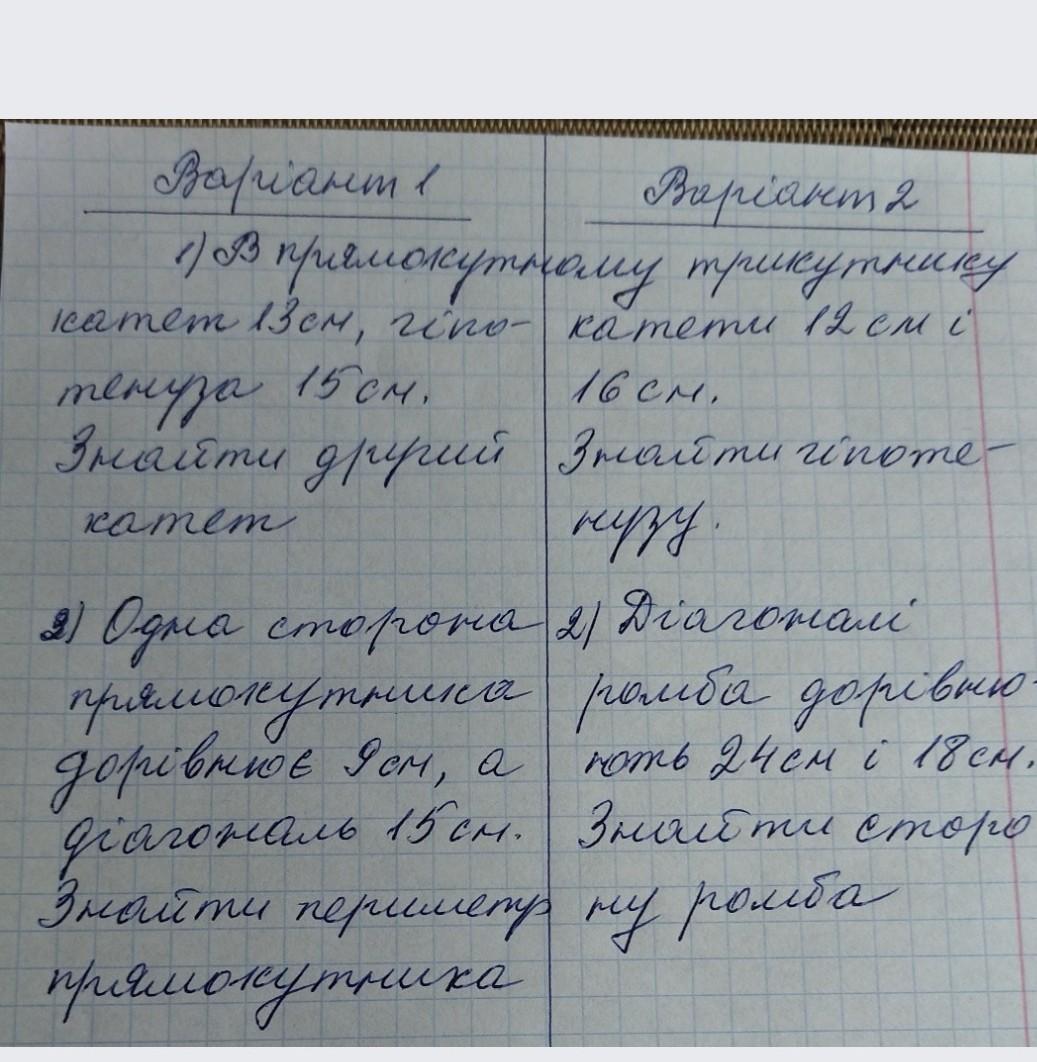 Варіант 1
Варіант 2
1) В прямокутному трикутнику
катет 13 см, гіпо-
тенуза 15 см.
Знайти другий
катет
2) Одна сторона
прямокутника
дорівнює 9 см, а
діагональ 15 см.
Знайти периметр
прямокутника
катети 12 см і
16 см.
Знайти гіпоте-
нузу.
2) Діагоналі
ромба дорівню-
ють 24 см і 18 см.
Знайти сторо
ну ромба